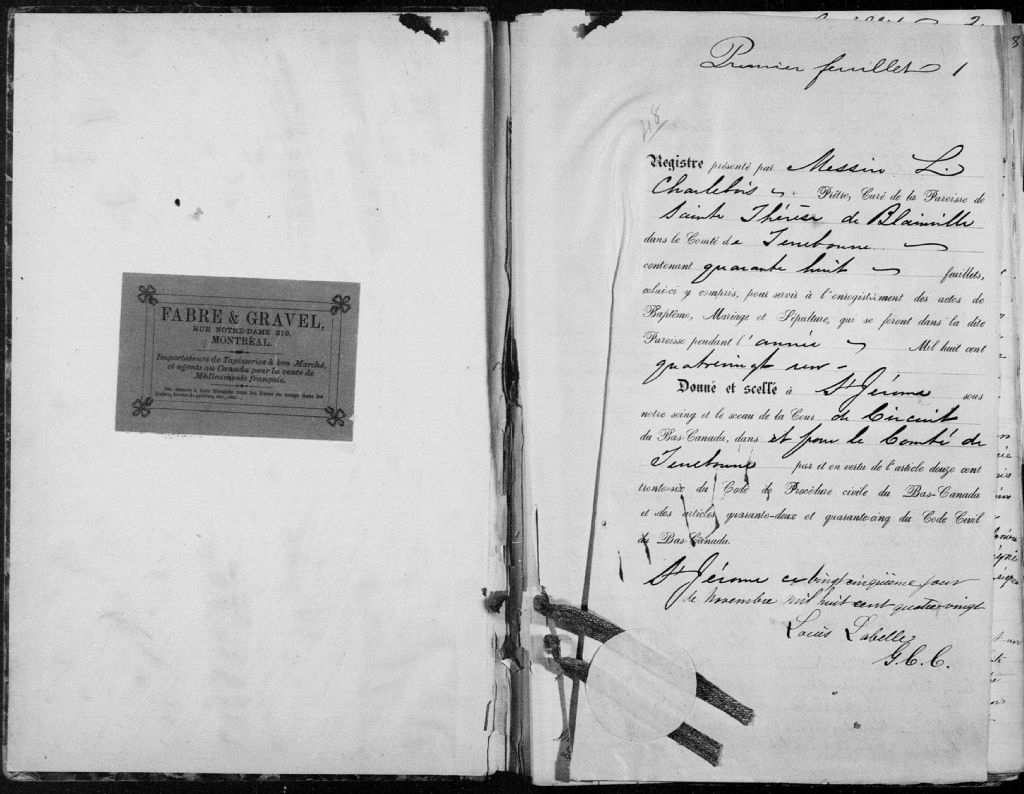 FABRE & GRAVEL,
RUE NOTRE-DAME 219,
MONTRÉAL.
Importateurs de Tapisseries à bon Marché,
et agents au Canada pour la vente de
Médicaments français.
On trouve à leur librairie tous les livres en usage dans les
écoles, livres de prières, etc., etc.
Premier feuillet 1
48
Registre présenté par Messire L.
Charlebois Prêtre, Curé de la Paroisse de
Sainte Thérèse de Blainville
dans le Comté de Terrebonne
contenant quarante huit feuillets,
celui-ci y compris, pour servir à l'enregistrement des actes de
Baptême, Mariage et Sépulture, qui se feront dans la dite
Paroisse pendant l'année Mil huit cent
quatrevingt un
Donné et scellé à St Jérome sous
notre seing et le sceau de la Cour de Circuit
du Bas-Canada, dans et pour le Comté de
Terrebonne par et en vertu de l'article douze cent
trente-six du Code de Procédure civile du Bas-Canada
et des articles quarante-deux et quarante-cinq du Code Civil
du Bas-Canada.
St Jérome ce vingt cinquième jour
de novembre mil huit cent quatre-vingt
Louis Labelle
G.C.C.